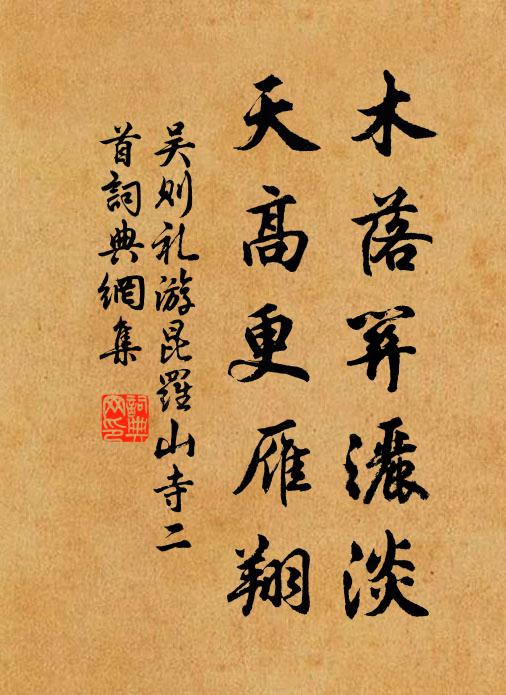 木落灑淡
天高更雁翔
吴则礼游昆羅山寺二
首詞典網集
詞典
网印